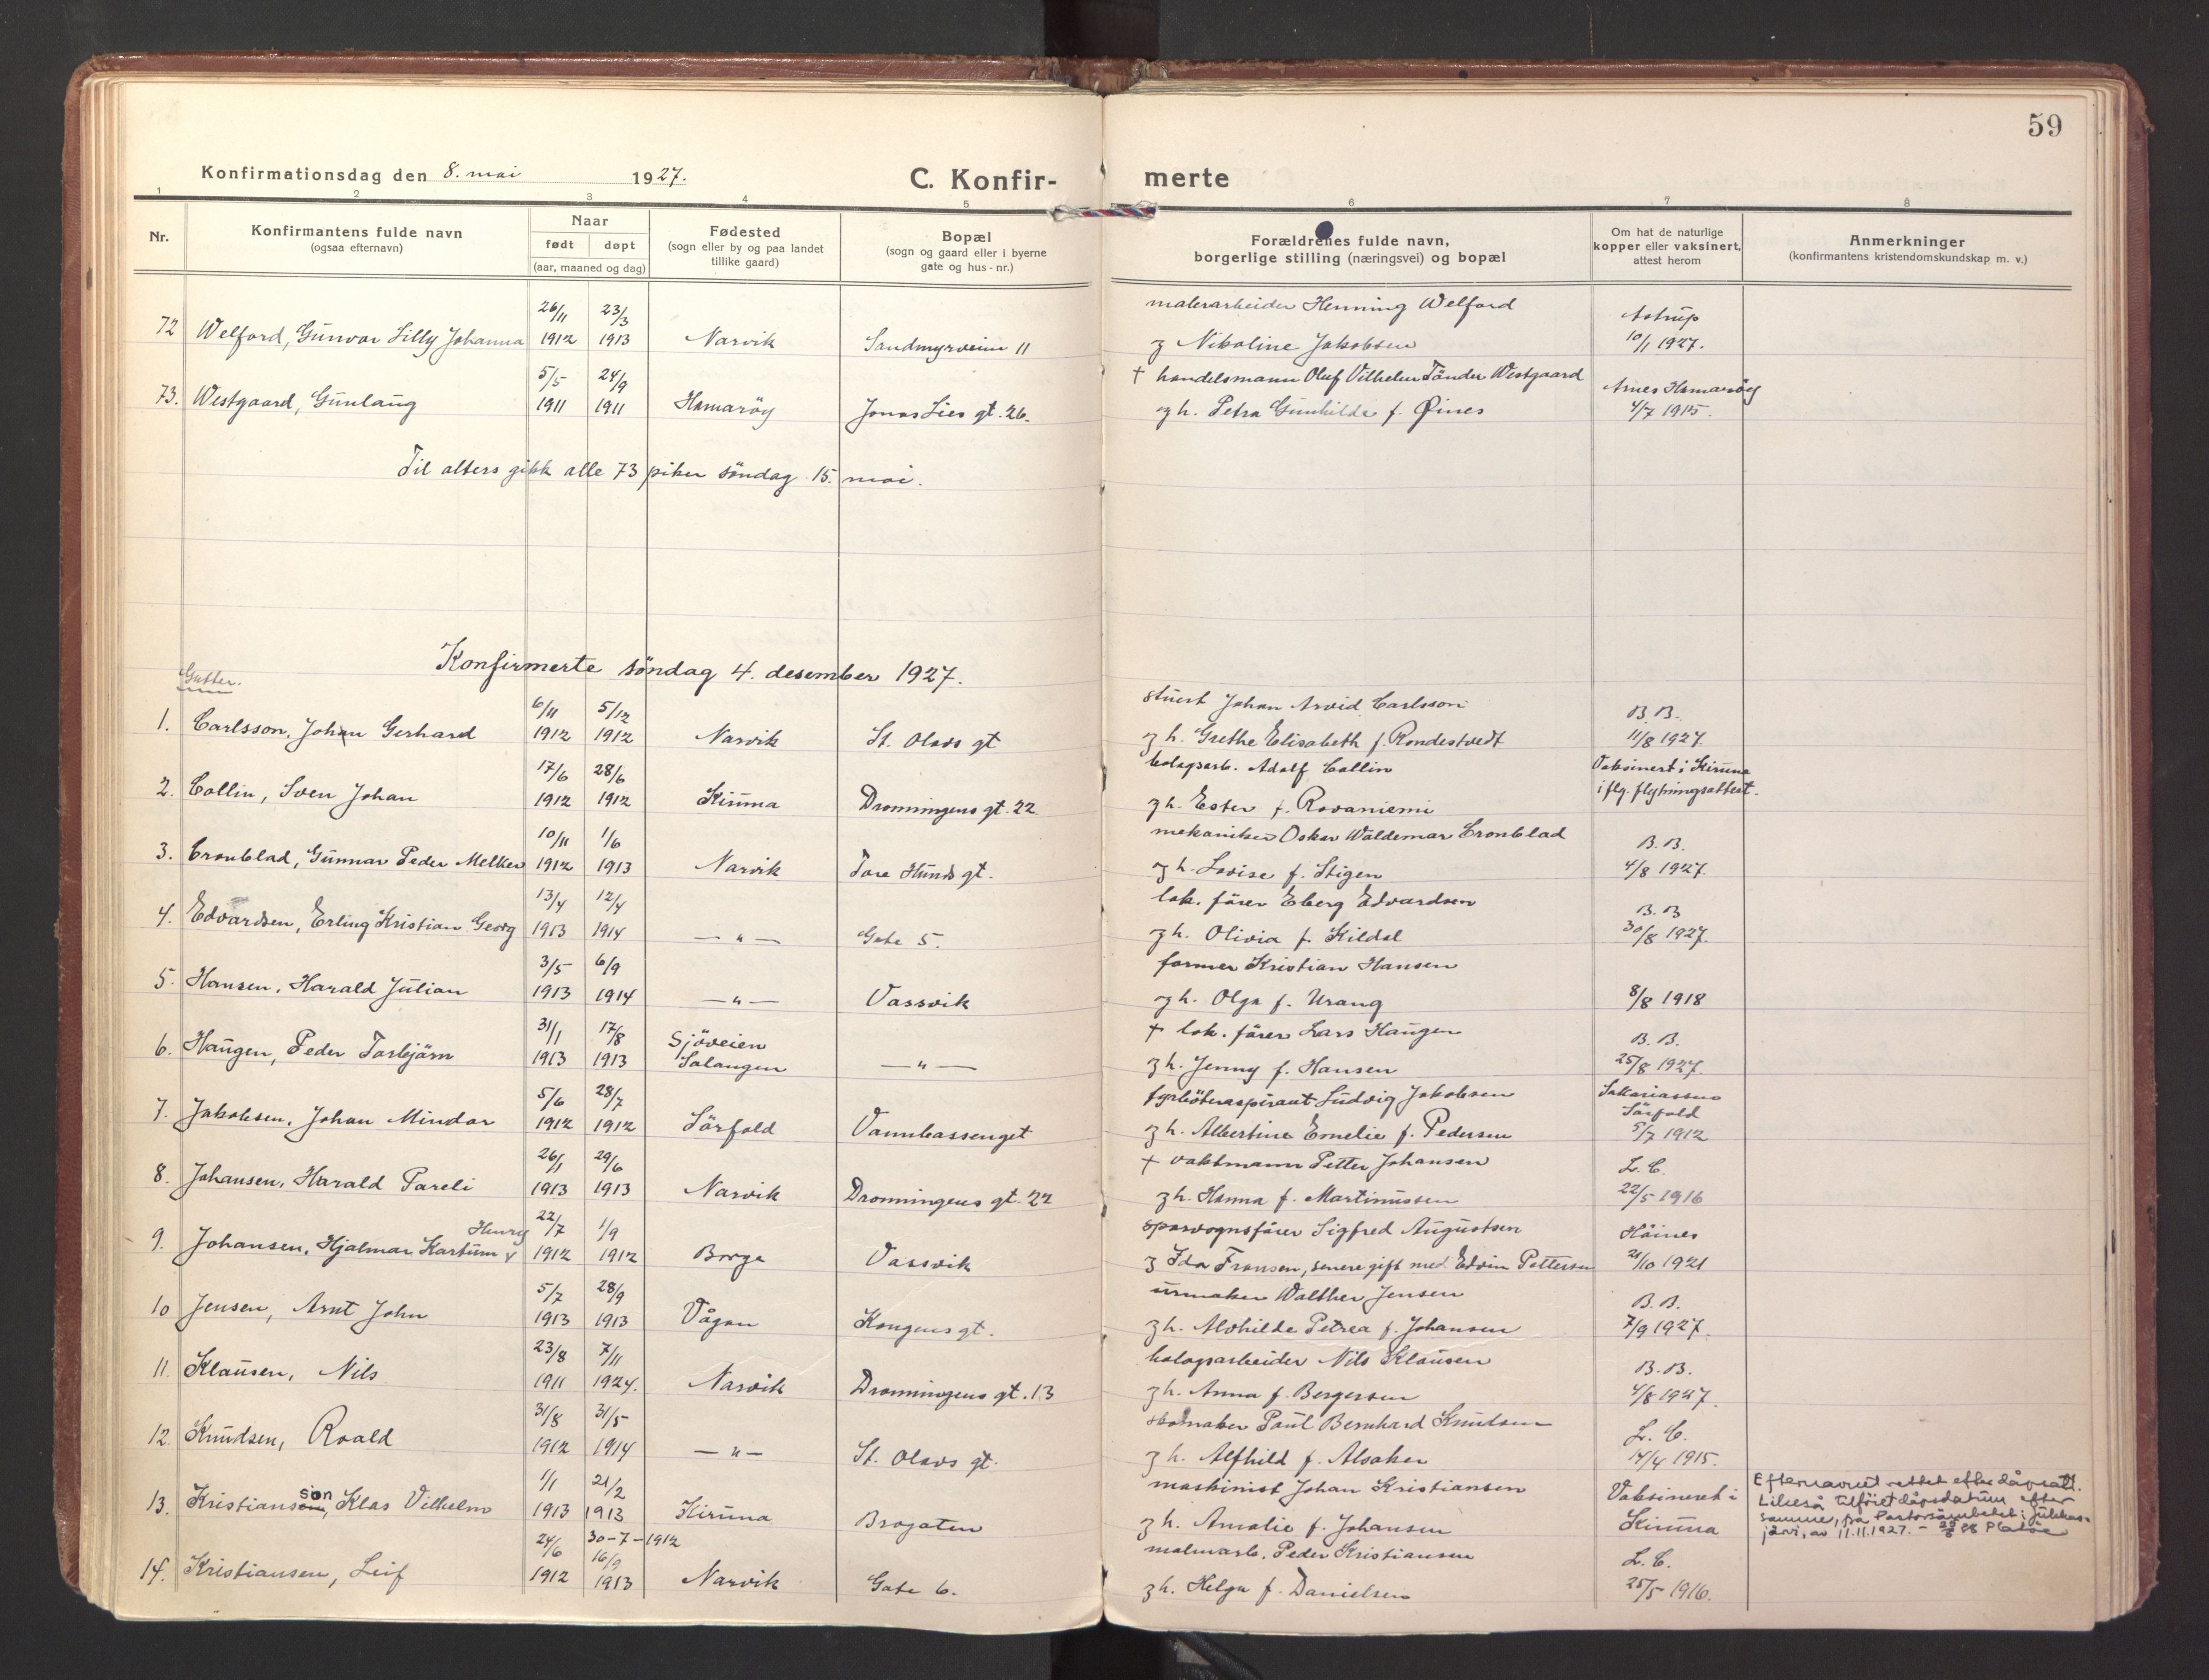 59
Konfirmationsdag den 8. mai 1927.
C. Konfir- merte
1 2 3 4 5 6 7 8
Nr.
Konfirmantens fulde navn
(ogsaa efternavn)
Naar
født døpt
(aar, maaned og dag)
Fødested
(sogn eller by og paa landet
tillike gaard)
Bopæl
(sogn og gaard eller i byerne
gate og hus-nr.)
Forældrenes fulde navn,
borgerlige stilling (næringsvei) og bopæl
Om hat de naturlige
kopper eller vaksinert,
attest herom
Anmerkninger
(konfirmantens kristendomskundskap m. v.)
26/11 23/3 malerarbeider Henning Welford Astrup
72 Welford, Gunvor Lilly Johanna 1912 1913 Narvik Sandmyrveien 11 og Nikoline Jakobsen 10/1 1927.
5/5 24/9 † handelsmann Oluf Vilhelm Tönder Westgaard Arnes Hamaröy
73. Westgaard, Gunlaug 1911 1911 Hamaröy Jonas Lies gt. 26. og h. Petra Gunhilda f. Øines 4/7 1915.
Til alters gikk alle 73 piker söndag 15. mai.
Konfirmerte söndag 4. desember 1927.
Gutter.
6/11 5/12 stuert Johan Arvid Carlsson B. B.
1. Carlsson, Johan Gerhard 1912 1912 Narvik St. Olavs gt og h. Grethe Elisabeth f. Rondestvedt 11/8 1927.
17/6 28/6 bolagsarb. Adolf Collin Vaksinert i Kiruna
2. Collin, Sven Johan 1912 1912 Kiruna Dronningens gt. 22. og h. Ester f. Rovaniemi i flg. flytningsattest.
10/11 1/6 mekaniker Oskar Waldemar Cronblad B. B.
3. Cronblad, Gunnar Peder Melker 1912 1913 Narvik Tore Hunds gt. og h. Lovise f. Stigen 4/8 1927.
13/4 12/4 lok. förer Eberg Edvardsen B. B
4. Edvardsen, Erling Kristian Georg 1913 1914 — " — Gate 5. og h. Olivia f. Kildal 30/8 1927.
3/5 6/9 former Kristian Hansen
5. Hansen, Harald Julian 1913 1914 — " — Vassvik og h. Olga f. Urang 8/8 1918
31/1 17/8 Sjöveien † lok. förer Lars Haugen B. B.
6. Haugen, Peder Torbjörn 1913 1913 Salangen — " — og h. Jenny f. Hansen 25/8 1927.
5/6 28/7 fyrböteraspirant Ludvig Jakobsen Sakariassen Sörfold
7. Jakobsen, Johan Mindor 1912 1912 Sörfold Vannbassenget og h. Albertine Emelie f. Pedersen 5/7 1912
26/1 29/6 † vaktmann Petter Johansen L. C.
8. Johansen, Harald Pareli 1913 1913 Narvik Dronningens gt. 22 og h. Hanna f. Martinussen 22/5 1916
Henry 22/7 1/9 sporvognsförer Sigfred Augustsen Höines
9. Johansen, Hjalmar Kartum 1912 1912 Borge Vassvik og Ida Fransen, senere gift med Edvin Pettersen 21/10 1921
5/7 28/9 urmaker Walther Jensen B. B.
10 Jensen, Arnt John 1913 1913 Vågan Kongens gt. og h. Alvhilde Petrea f. Johansen 7/9 1927.
23/8 7/11 bolagsarbeider Nils Klausen B. B.
11. Klausen, Nils 1911 1924. Narvik Dronningens gt. 13 og h. Anna f. Bergersen 4/8 1927.
31/8 31/5 skomaker Paul Bernhard Knudsen L. C.
12. Knudsen, Roald 1912 1914 — " — St. Olavs gt. og h. Alfhild f. Alsaker 14/4 1915.
1/1 21/2 maskinist Johan Kristiansen Vaksineret i
13. Kristiansen, sson Klas Vilhelm 1913 1913 Kiruna Brogaten og h. Amalie f. Johansen Kiruna
Efternavnet rettet efter dåpsatt.
Likeså tilföiet dåpsdatum efter
samme, fra Pastorsämbetet i Jukkas-
järvi, av 11.11.1927.
24/6 30-7-1912 16/9 malmarb. Peder Kristiansen L. C.
14. Kristiansen, Leif 1912 1913 Narvik Gate 6. og h. Helga f. Danielsen 25/5 1916.